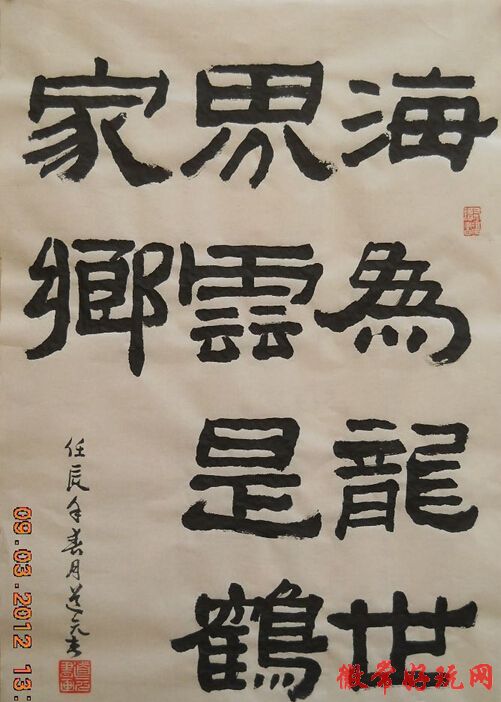 海為龍世
界雲是鶴
家鄉
任辰年春月道元書
09.03.2012 13:
徽常好玩网